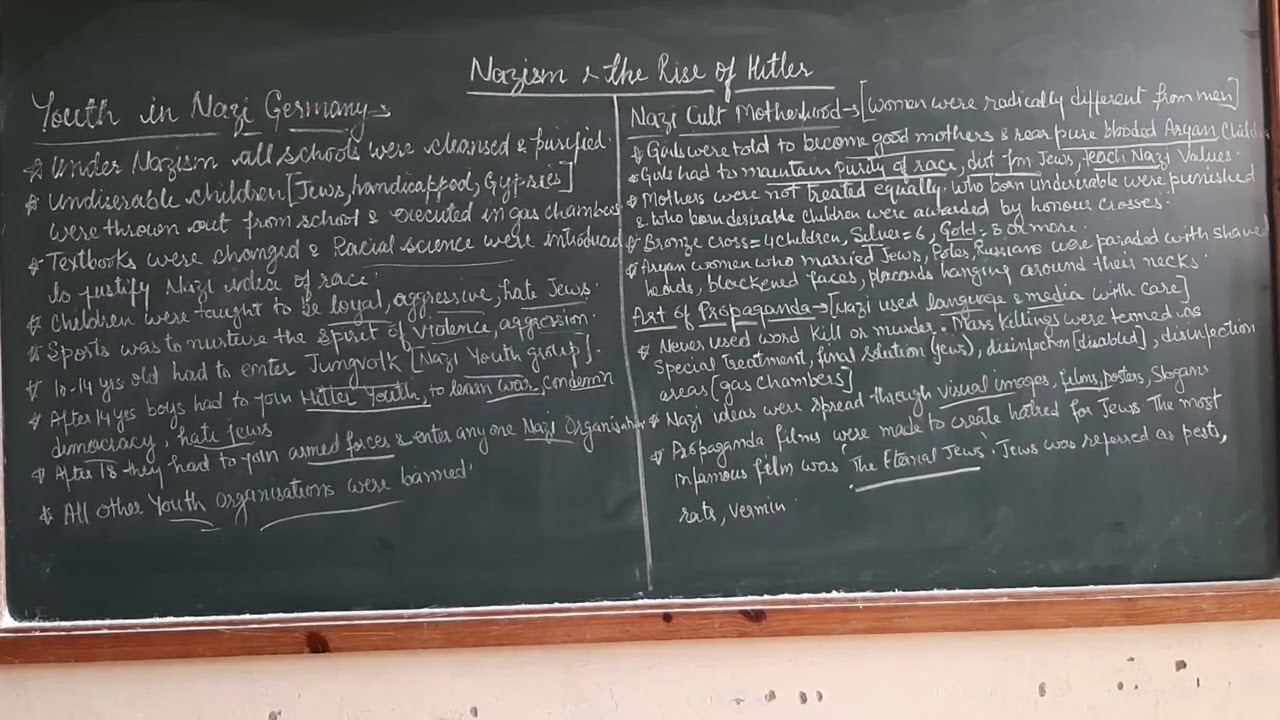 Nazism & the Rise of Hitler
Youth in Nazi Germany→
* Under Nazism all schools were cleansed & purified.
* Undiserable children [Jews, handicappod, Gypsies]
were thrown out from school & executed in gas chambers
* Textbooks were changed & Racial science were introduced
to justify Nazi idea of race.
* Children were taught to be loyal, aggressive, hate Jews.
* Sports was to nurture the spirit of violence, aggression.
* 10-14 yrs old had to enter Jungvolk [Nazi Youth group].
* After 14 yes boys had to join Hitler Youth, to learn war, condemn
democracy, hate Jews
* After 18 they had to join armed forces & enter any one Nazi Organisation
* All other Youth organisations were banned.
Nazi Cult Motherhood→[women were radically different from men]
* Girls were told to become good mothers & rear pure blooded Aryan Children
* Girls had to maintain purity of race, dist fm Jews, teach Nazi Values.
* Mothers were not treated equally. Who born undesirable were punished
& who born desirable children were awarded by honour crosses.
* Bronze cross=4 children, Silver=6, Gold=8 or more.
* Aryan women who married Jews, Poles, Russians were paraded with shaved
heads, blackened faces, placards hanging around their necks.
Art of Propaganda→[Nazi used language & media with care]
* Never used word kill or murder. Mass killings were termed as
Special Treatment, final solution (Jews), disinfection [disabled], disinfection
areas [gas chambers]
* Nazi ideas were spread through visual images, films, posters, Slogans
* Propaganda films were made to create hatred for Jews The most
infamous film was 'The Eternal Jews'. Jews was referred as pests,
rats, vermin.